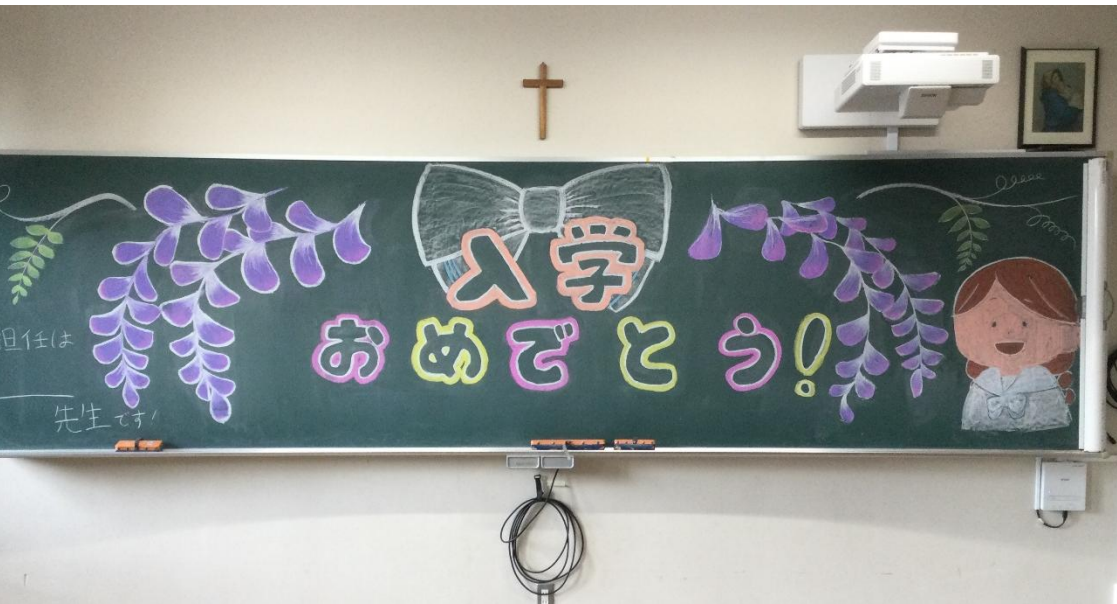 入学
おめでとう!
担任は
先生です!